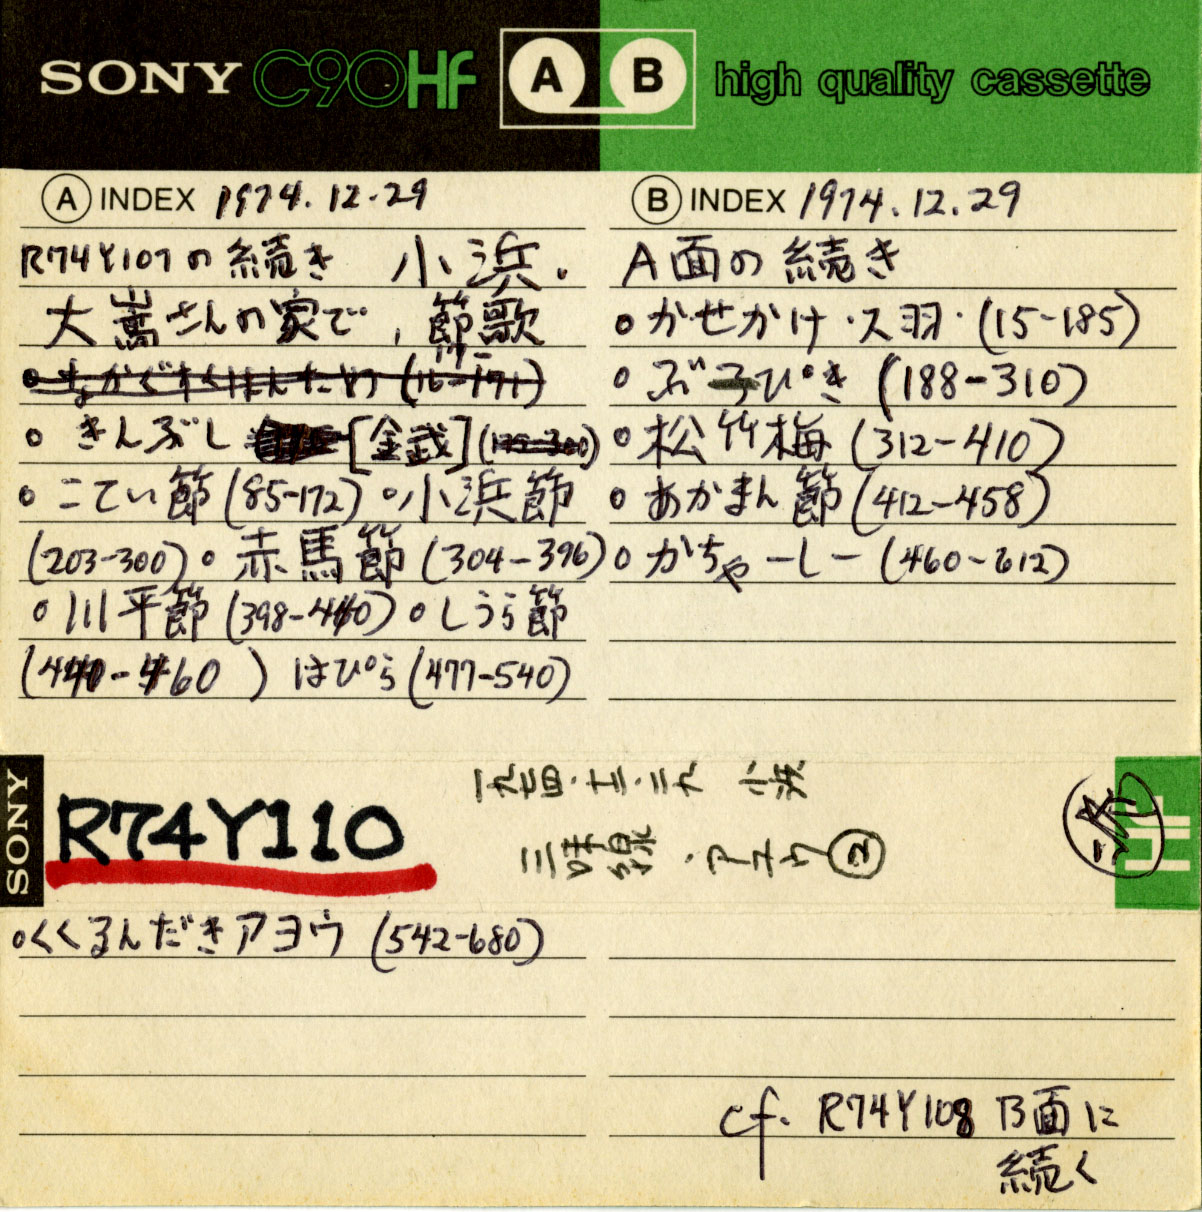 SONY C90HF A B high quality cassette
A INDEX 1974.12.29
R74Y107の続き 小浜.
大嵩さんの家で, 節歌
きんぶし [金武]
こてい節(85-172) 小浜節
(203-300) 赤馬節(304-396)
川平節(398-440) しうら節
(440-460) はぴら(477-540)
B INDEX 1974.12.29
A面の続き
かせかけ・ス羽・(15-185)
ぶ ぴき(188-310)
松竹梅(312-410)
あかまん節(412-458)
かちゃーしー(460-612)
SONY
R74Y110
一九七四・十二・二九 小浜
三味線・アユウ②
HF
くくるんだきアヨウ(542-680)
cf. R74Y108 B面に
続く